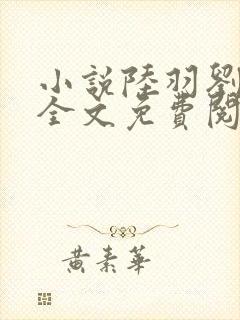 小説陸羽劉
全文免費閱
黃素華